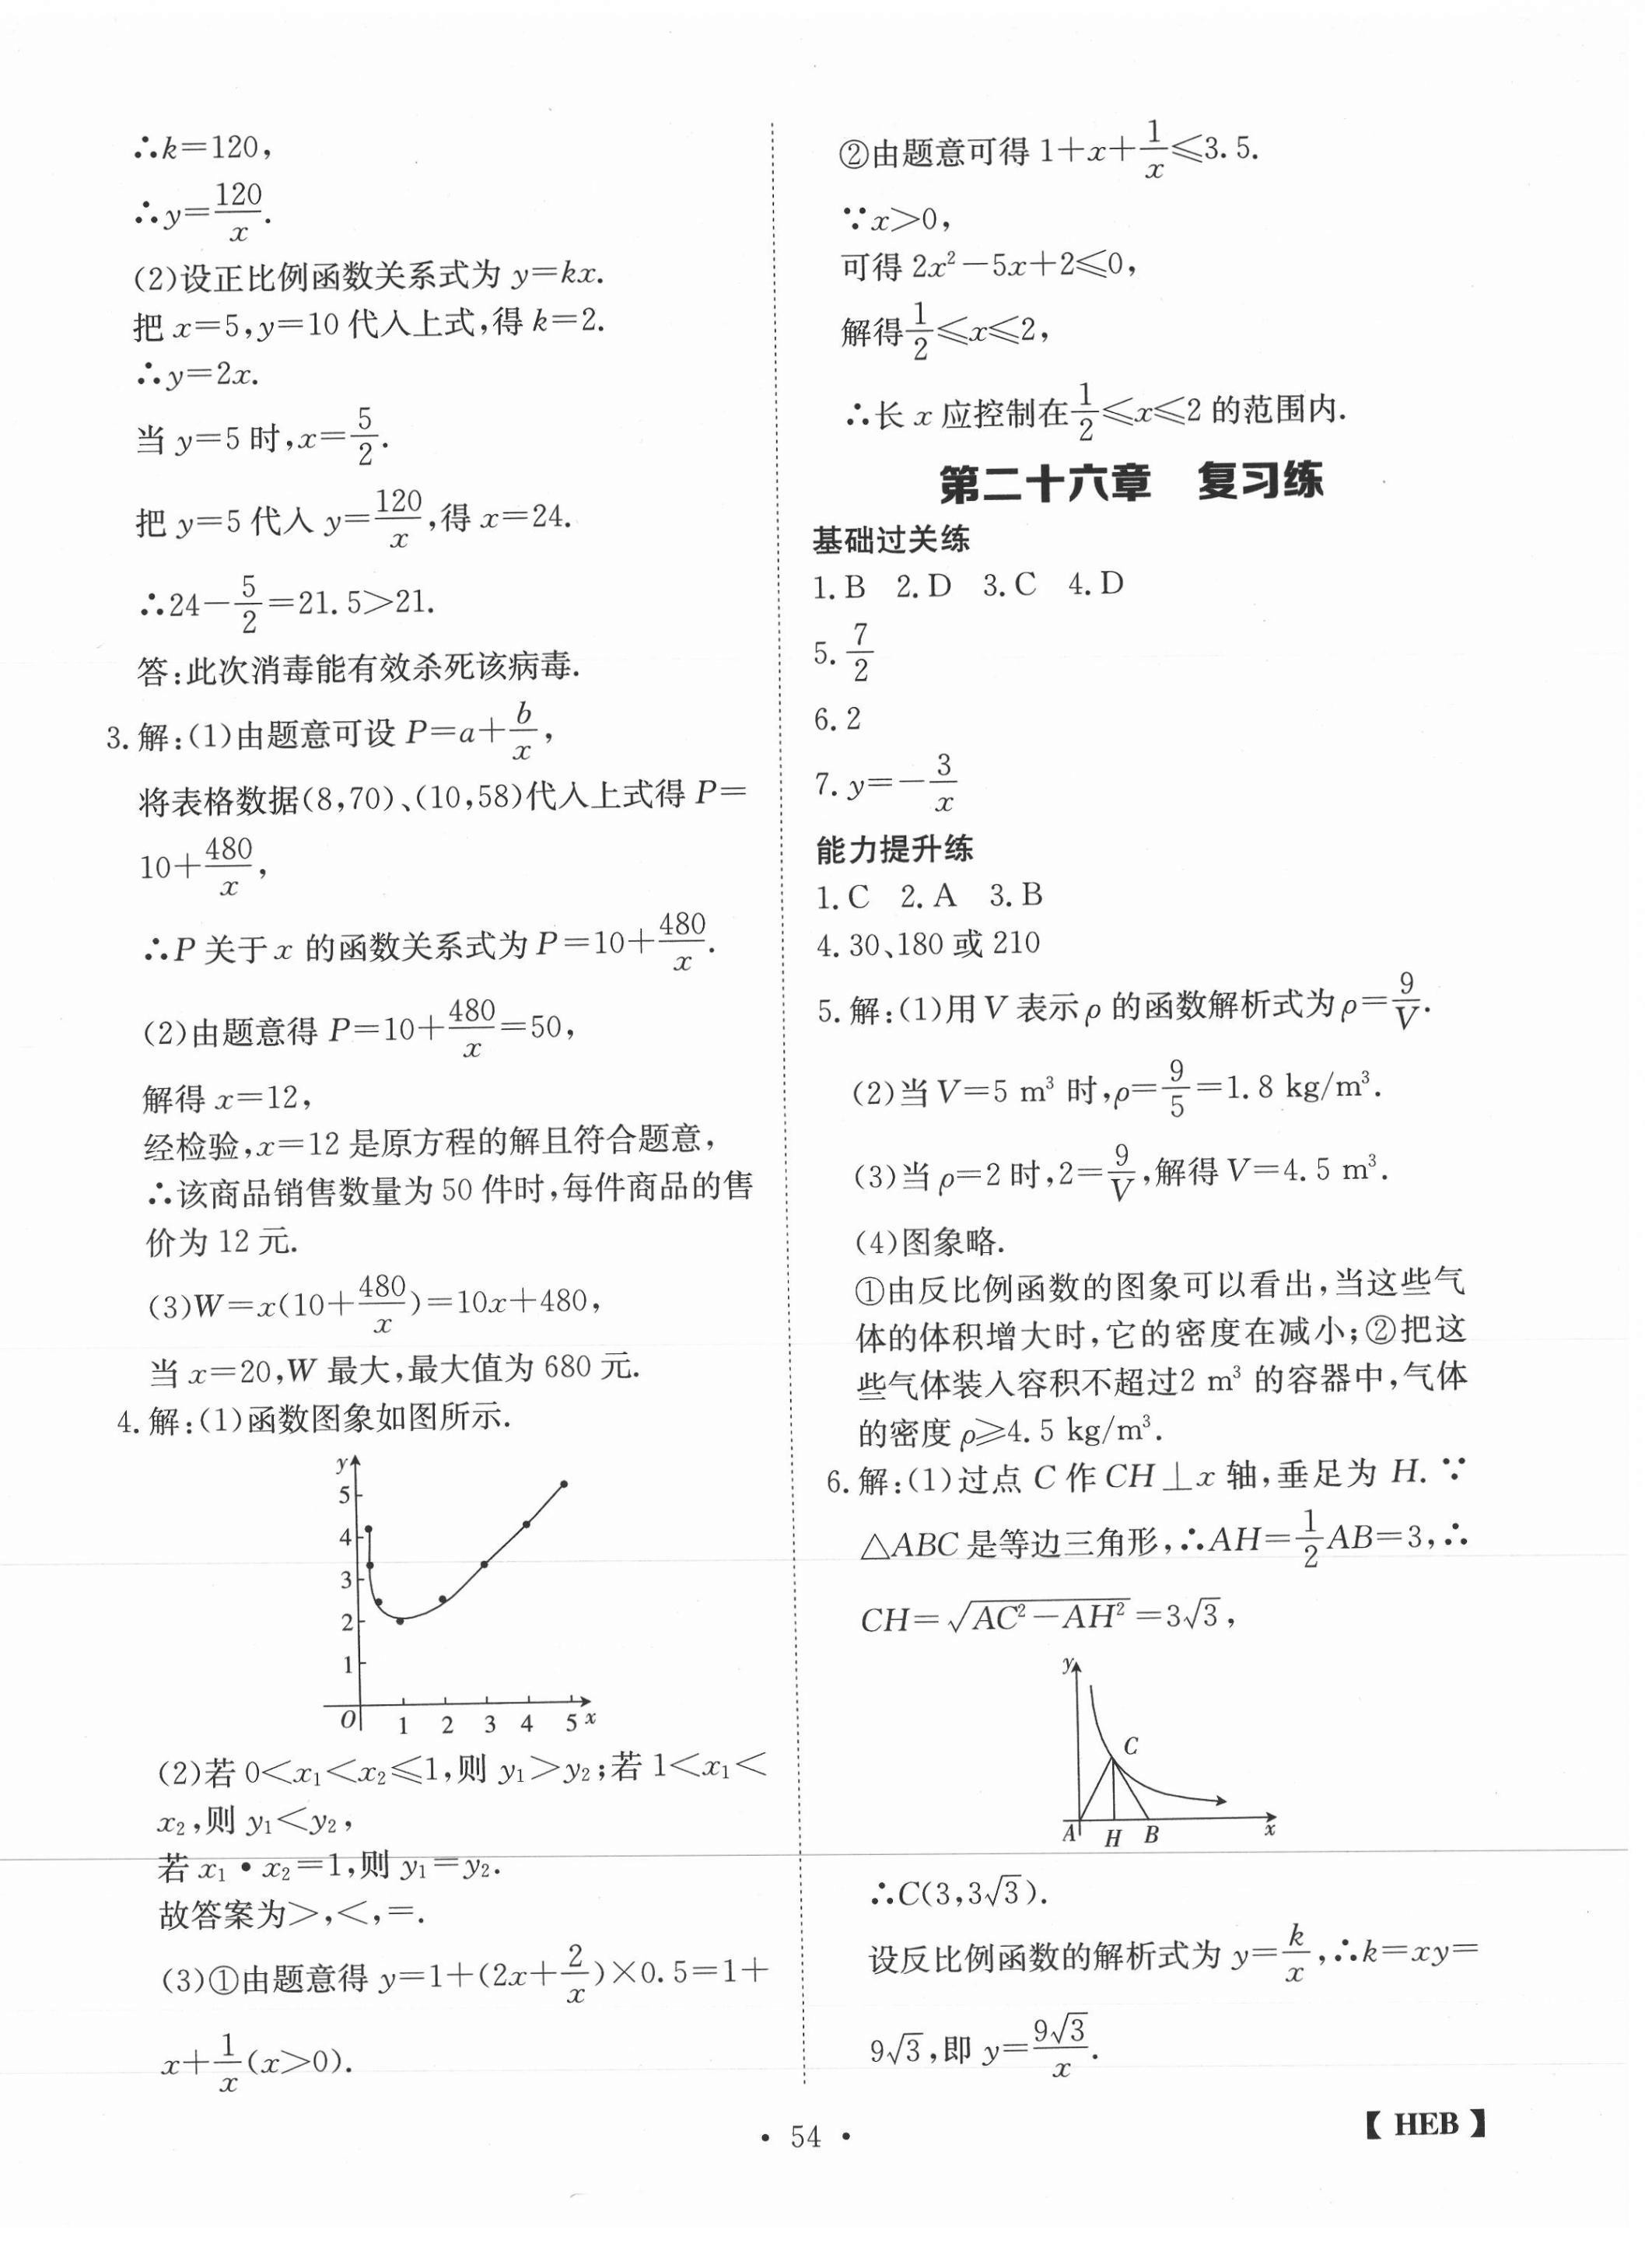 ∴k=120,
∴y=120/x.
(2)设正比例函数关系式为 y=kx.
把 x=5,y=10 代入上式,得 k=2.
∴y=2x.
当 y=5 时,x=5/2.
把 y=5 代入 y=120/x,得 x=24.
∴24-5/2=21.5>21.
答:此次消毒能有效杀死该病毒.
3.解:(1)由题意可设 P=a+b/x,
将表格数据(8,70)、(10,58)代入上式得 P=
10+480/x,
∴P 关于 x 的函数关系式为 P=10+480/x.
(2)由题意得 P=10+480/x=50,
解得 x=12,
经检验,x=12 是原方程的解且符合题意,
∴该商品销售数量为 50 件时,每件商品的售
价为 12 元.
(3)W=x(10+480/x)=10x+480,
当 x=20,W 最大,最大值为 680 元.
4.解:(1)函数图象如图所示.
y
5
4
3
2
1
O 1 2 3 4 5 x
(2)若 0<x₁<x₂≤1,则 y₁>y₂;若 1<x₁<
x₂,则 y₁<y₂,
若 x₁•x₂=1,则 y₁=y₂.
故答案为>,<,=.
(3)①由题意得 y=1+(2x+2/x)×0.5=1+
x+1/x(x>0).
②由题意可得 1+x+1/x≤3.5.
∵x>0,
可得 2x²-5x+2≤0,
解得1/2≤x≤2,
∴长 x 应控制在1/2≤x≤2 的范围内.
第二十六章 复习练
基础过关练
1.B 2.D 3.C 4.D
5.7/2
6.2
7.y=-3/x
能力提升练
1.C 2.A 3.B
4.30、180 或 210
5.解:(1)用 V 表示 ρ 的函数解析式为 ρ=9/V.
(2)当 V=5 m³ 时,ρ=9/5=1.8 kg/m³.
(3)当 ρ=2 时,2=9/V,解得 V=4.5 m³.
(4)图象略.
①由反比例函数的图象可以看出,当这些气
体的体积增大时,它的密度在减小;②把这
些气体装入容积不超过2 m³ 的容器中,气体
的密度 ρ≥4.5 kg/m³.
6.解:(1)过点 C 作 CH⊥x 轴,垂足为 H. ∵
△ABC 是等边三角形,∴AH=1/2AB=3,∴
CH=√(AC²-AH²)=3√3,
y
C
A H B x
∴C(3,3√3).
设反比例函数的解析式为 y=k/x,∴k=xy=
9√3,即 y=9√3/x.
• 54 •
【 HEB 】